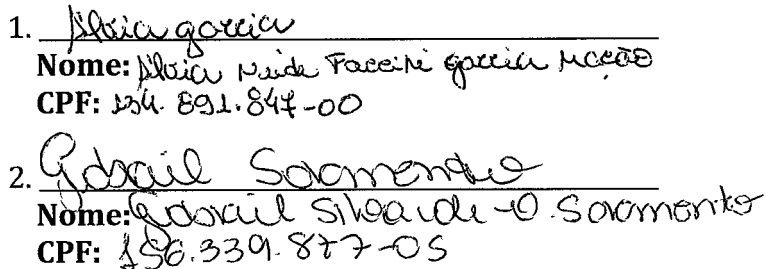 1. Silvia garcia
Nome: Silvia Neide Faccini garcia Macão
CPF: 134.891.847-00
2. Sarmento
Nome: Silva de O. Sarmento
CPF: 156.339.877-05